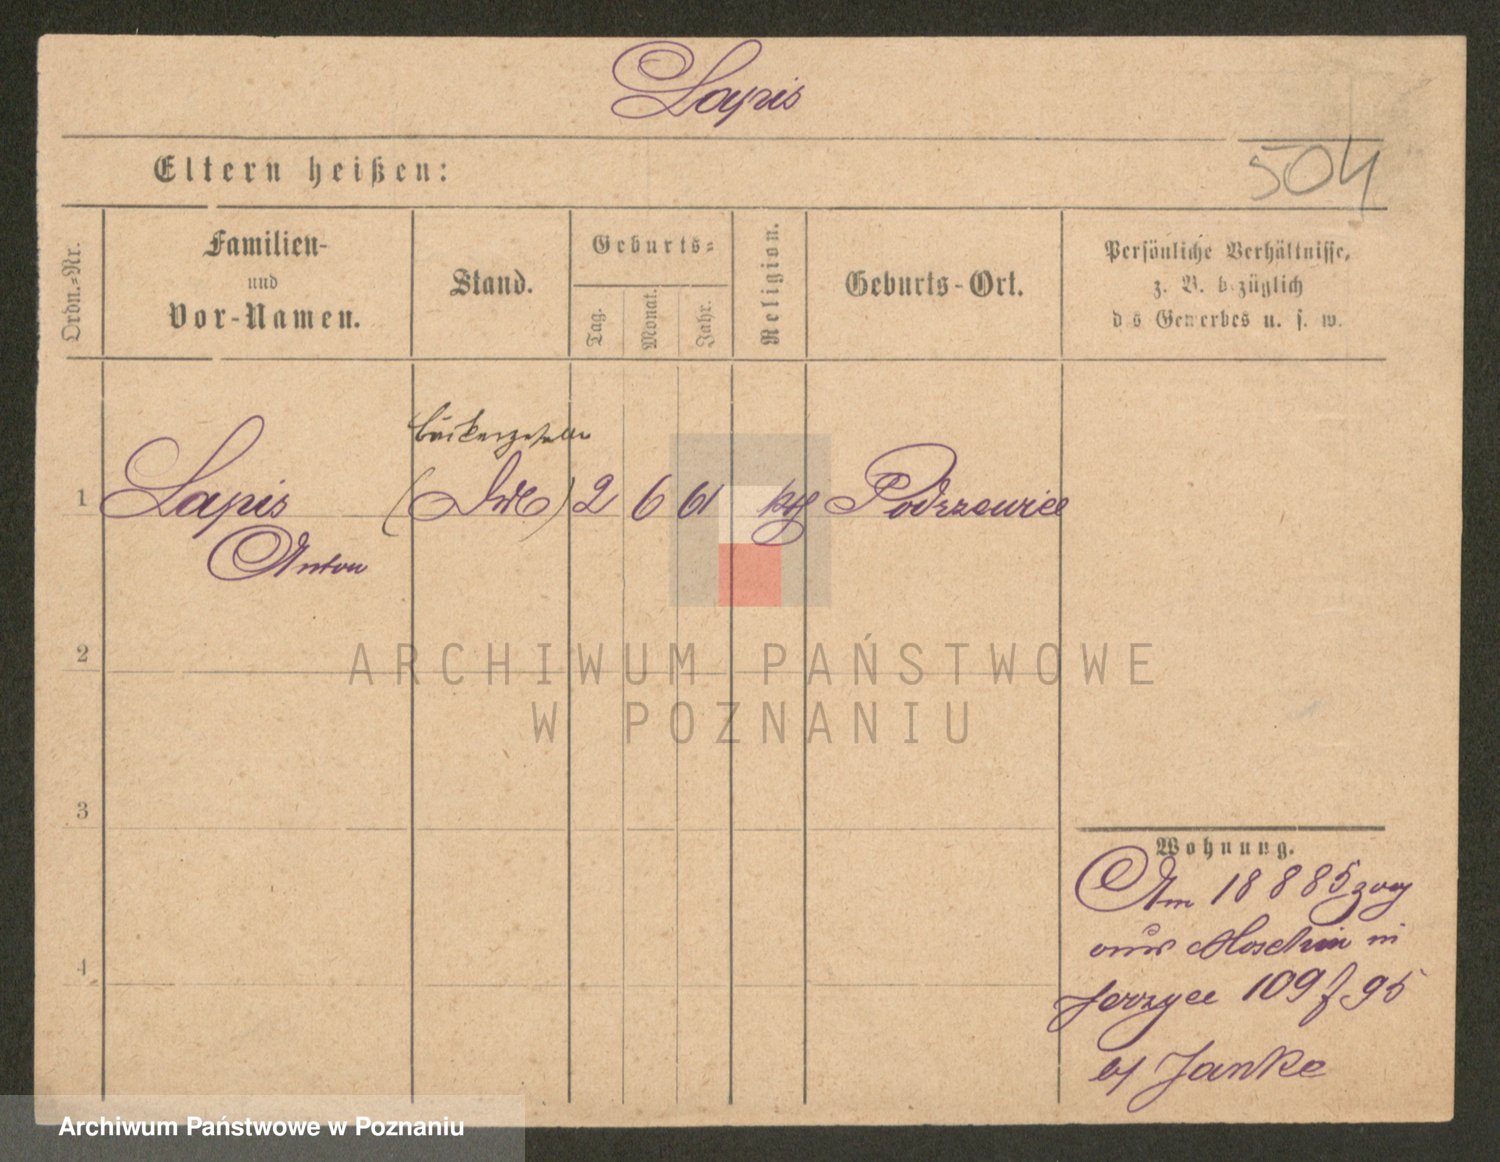 Lapis
504
Eltern heißen:
Ordn.-Nr.
Familien-
und
Vor-Namen.
Stand.
Geburts-
Tag.
Monat.
Jahr.
Religion.
Geburts-Ort.
Persönliche Verhältnisse,
z. B. bezüglich
des Gewerbes u. s. w.
Bäckergeselle
1 Lapis 2 6 61 kth Podrzewice
Anton
2
ARCHIWUM PAŃSTWOWE
W POZNANIU
3
Wohnung.
Am 18 8 85 zog
aus Moschin in
4
Jerzyce 109 f 95
bei Janke
Archiwum Państwowe w Poznaniu